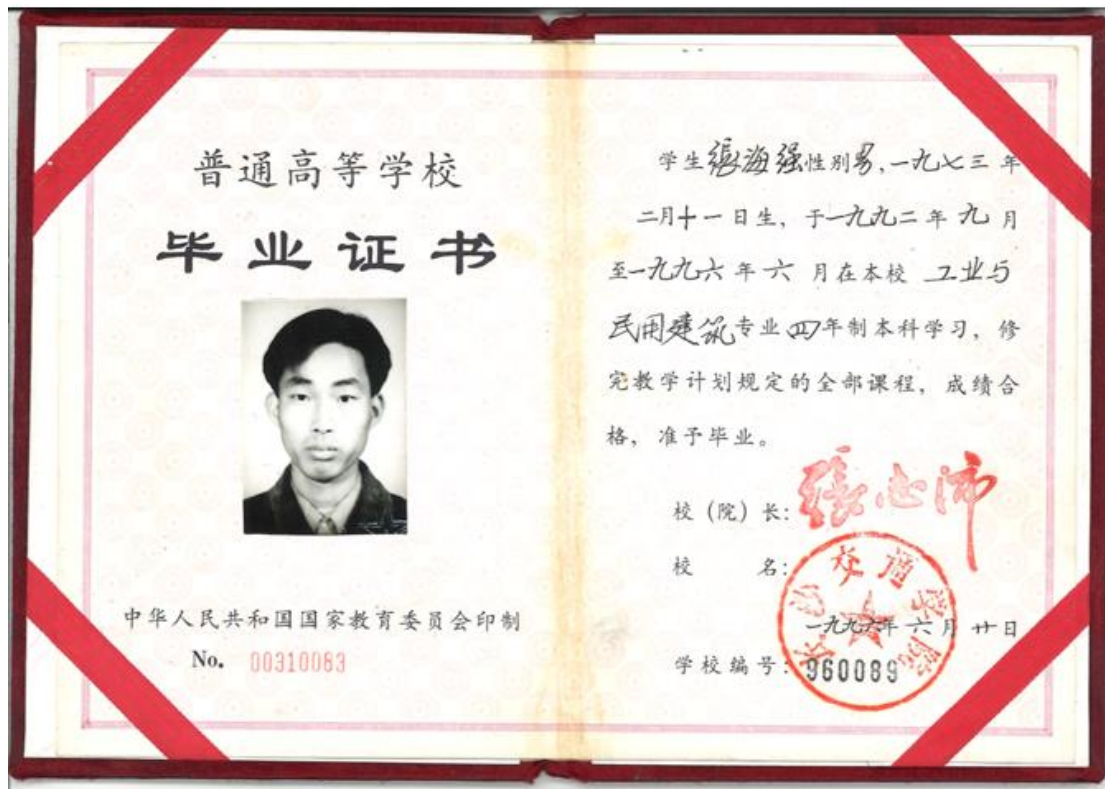 普通高等学校
毕业证书
中华人民共和国国家教育委员会印制
No. 00310083
学生張海强性别男,一九七三年
二月十一日生,于一九九二年九月
至一九九六年六月在本校 工业与
民用建筑专业四年制本科学习,修
完教学计划规定的全部课程,成绩合
格,准予毕业。
校(院)长:
校 名:
长沙交通学院
一九九六年六月廿日
学校编号:960089